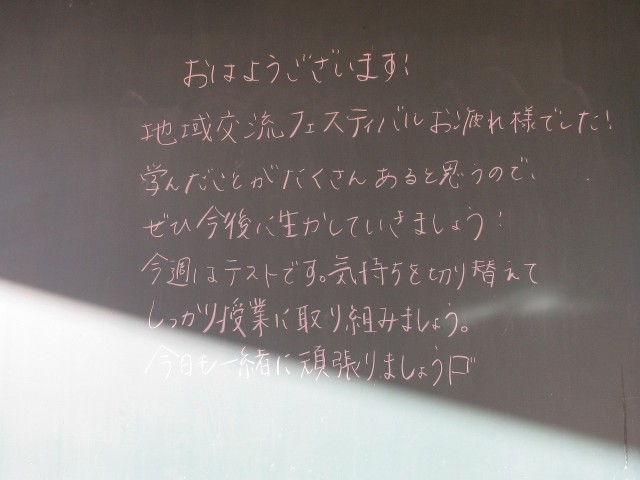 おはようございます!
地域交流フェスティバルお疲れ様でした!
学んだことがたくさんあると思うので、
ぜひ今後に生かしていきましょう!
今週はテストです。気持ちを切り替えて
しっかり授業に取り組みましょう。
今日も一緒に頑張りましょう